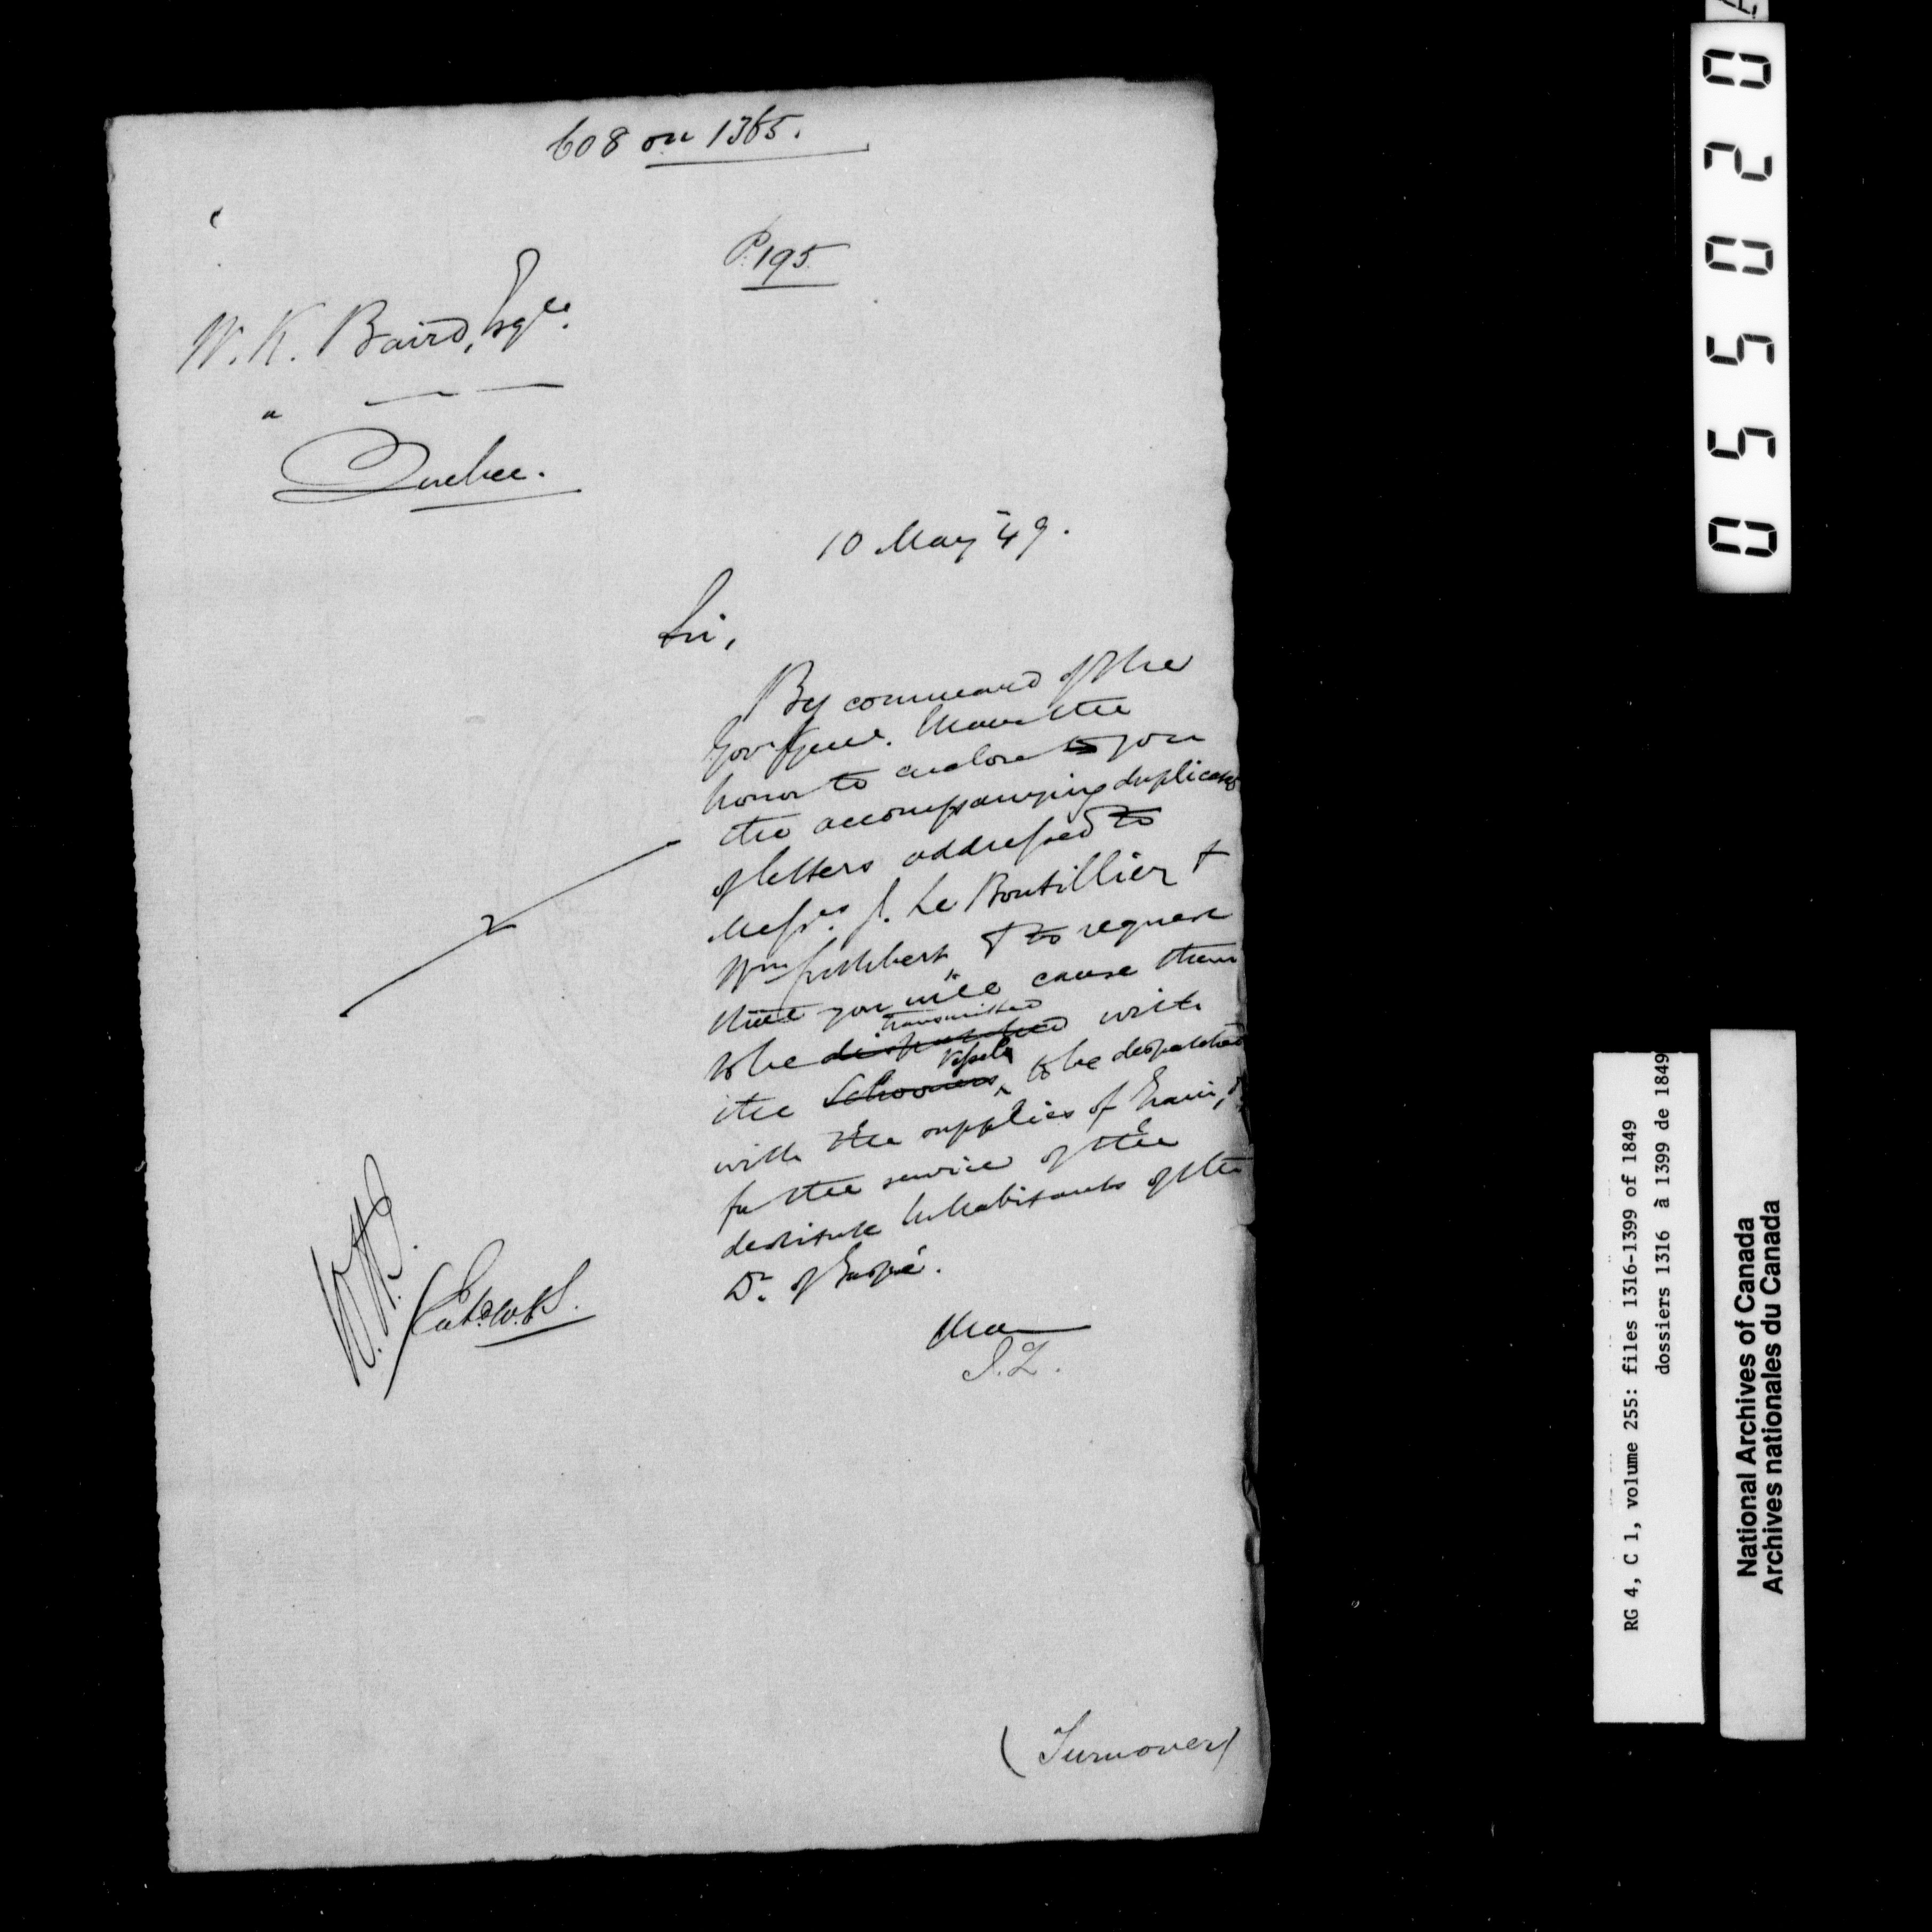 608 on 1365.
P. 195
W. K. Baird, Esqre.
Quebec.
10 May 49.
Sir,
By command of the
Govr Genl. I have the
honor to enclose to you
the accompanying duplicates
of letters addressed to
Messrs. J. Le Boutillier &
Wm Cuthbert & to request
that you will cause them
to be dispatched transmitted with
the Schooners Vessels to be despatched
with the supplies of Grain, &
for the service of the
destitute Inhabitants of the
Dt. of Gaspé.
I have
(Turnover)
055020
RG 4, C 1, volume 255: files 1316-1399 of 1849
dossiers 1316 à 1399 de 1849
National Archives of Canada
Archives nationales du Canada